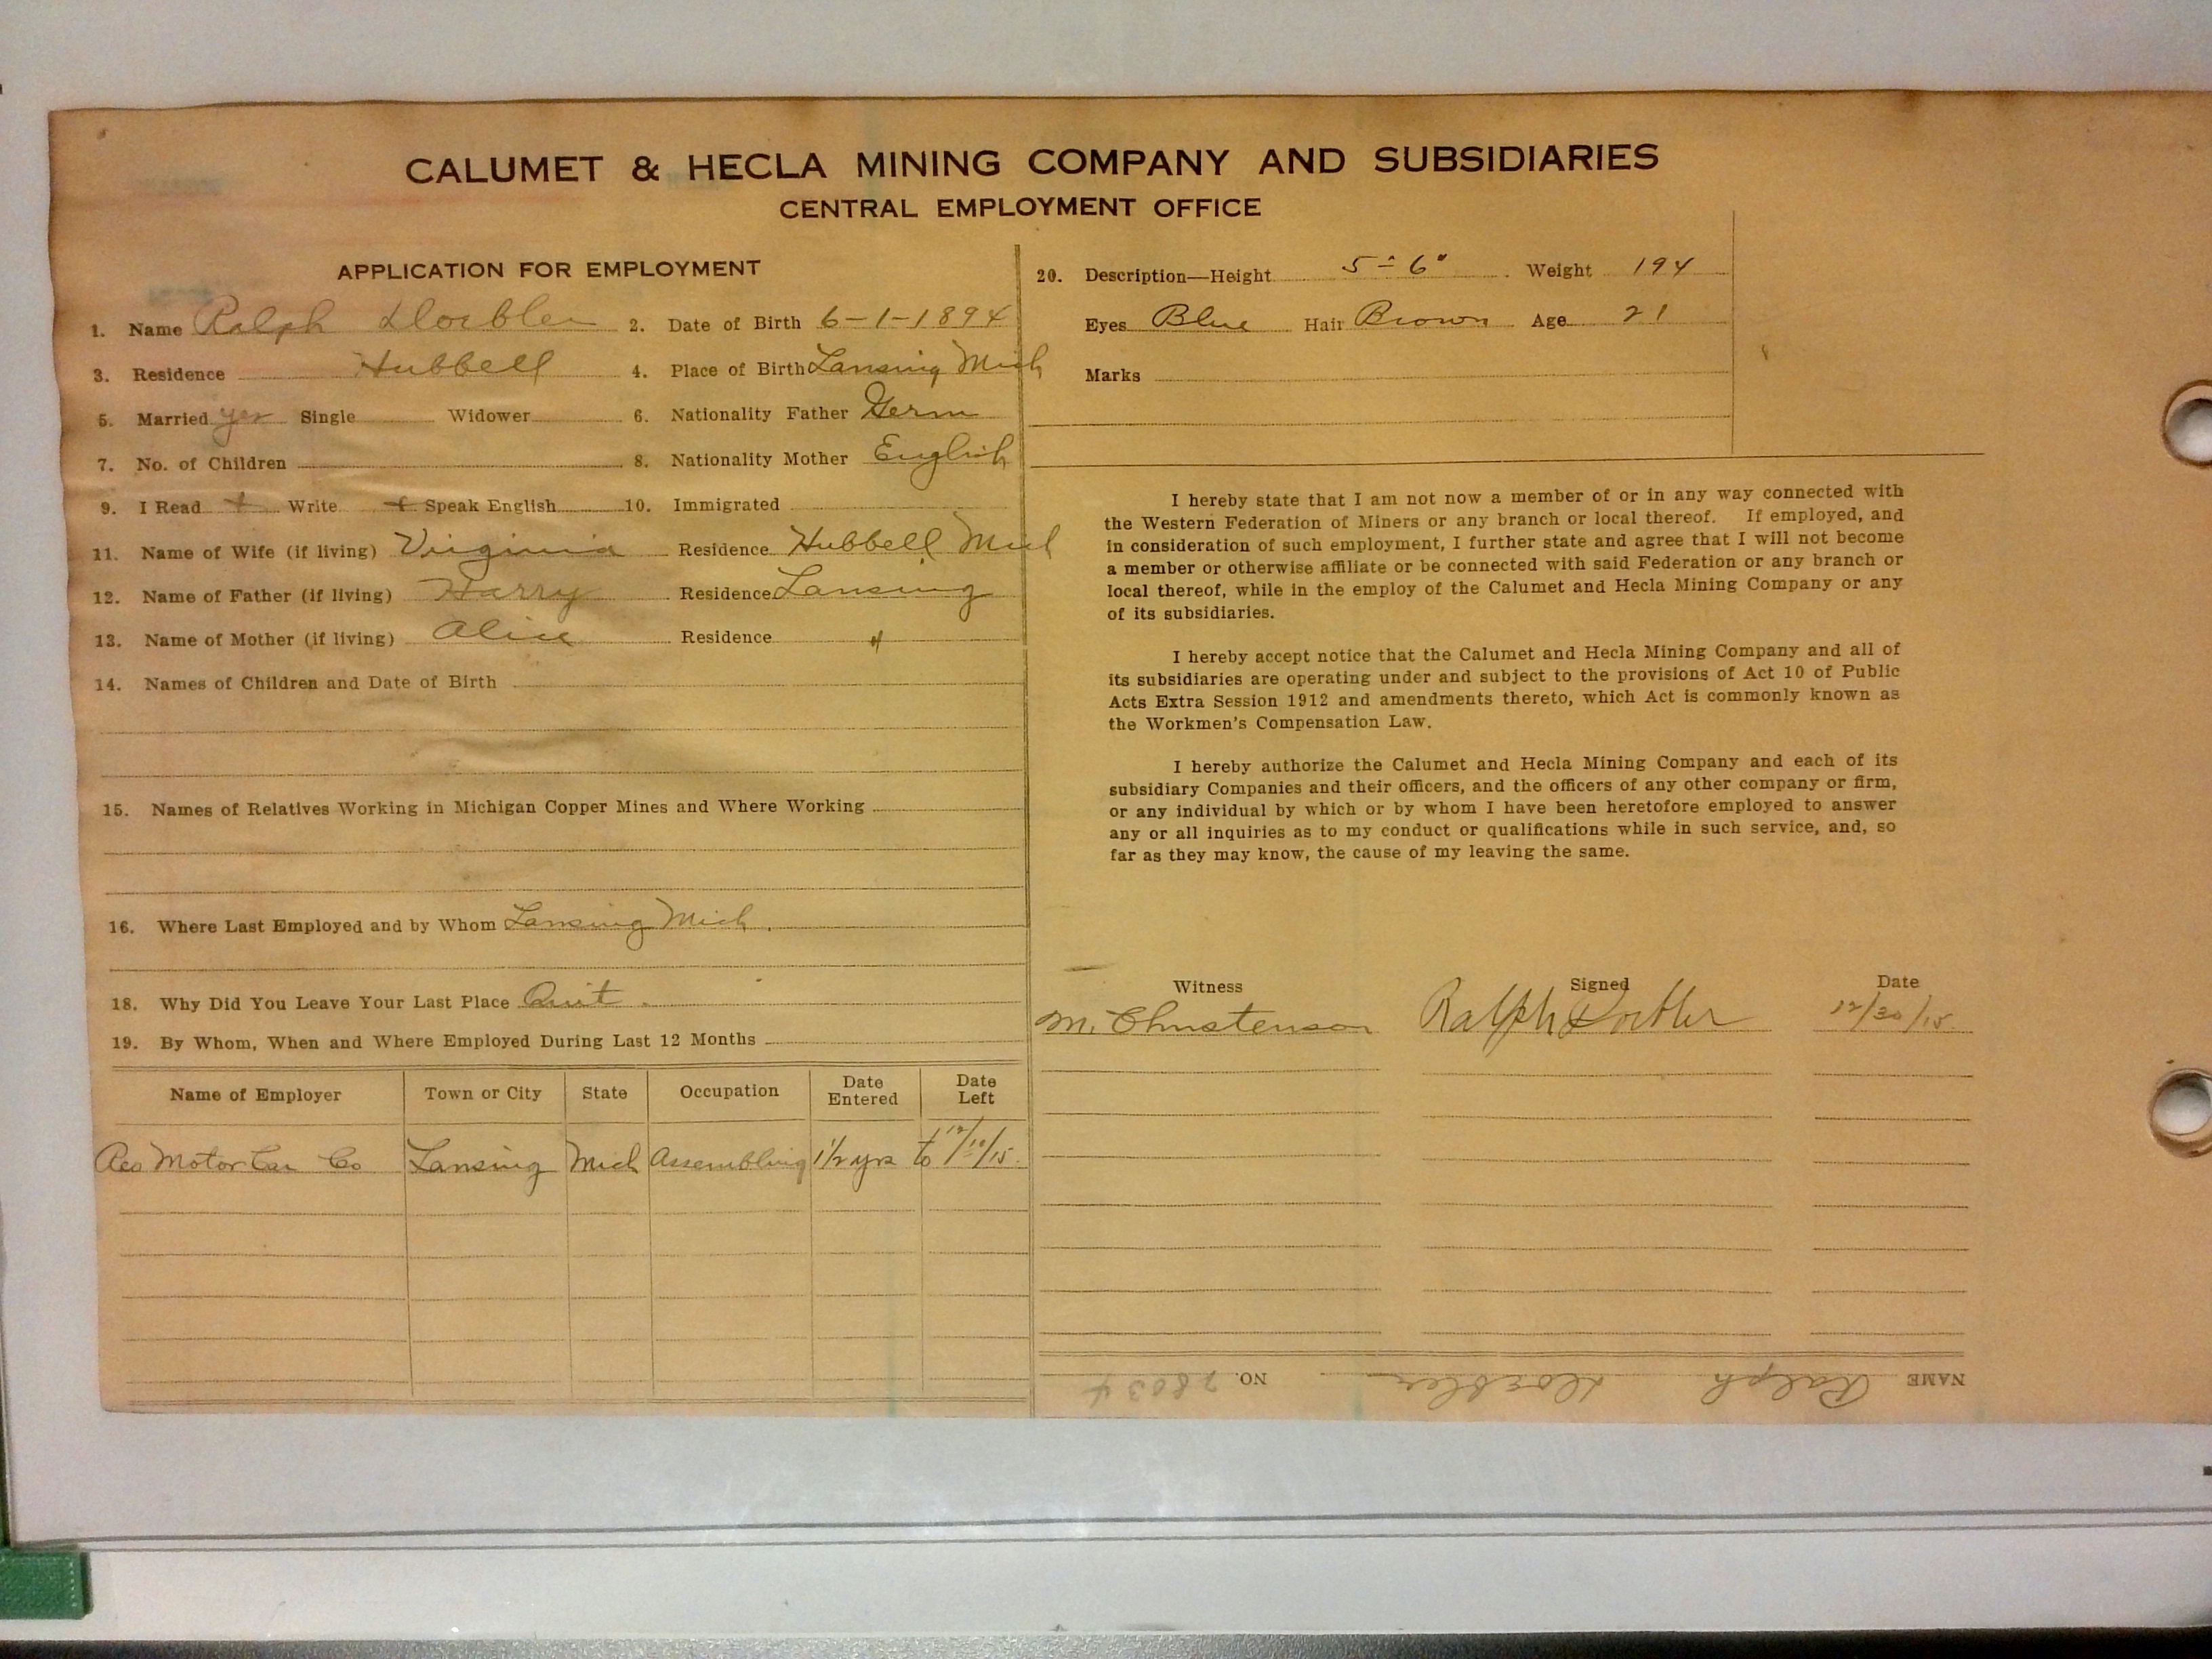 CALUMET & HECLA MINING COMPANY AND SUBSIDIARIES
CENTRAL EMPLOYMENT OFFICE
APPLICATION FOR EMPLOYMENT
1. Name Ralph Doebler 2. Date of Birth 6-1-1894
3. Residence Hubbell 4. Place of Birth Lansing Mich
5. Married yes Single Widower 6. Nationality Father Germ
7. No. of Children 8. Nationality Mother English
9. I Read + Write + Speak English 10. Immigrated
11. Name of Wife (if living) Virginia Residence Hubbell Mich
12. Name of Father (if living) Harry Residence Lansing
13. Name of Mother (if living) Alice Residence "
14. Names of Children and Date of Birth
15. Names of Relatives Working in Michigan Copper Mines and Where Working
16. Where Last Employed and by Whom Lansing Mich.
18. Why Did You Leave Your Last Place Quit.
19. By Whom, When and Where Employed During Last 12 Months
Name of Employer Town or City State Occupation Date Entered Date Left
Reo Motor Car Co Lansing Mich Assembling 1 1/2 yrs to 12/10/15.
20. Description—Height 5-6" Weight 194
Eyes Blue Hair Brown Age 21
Marks
I hereby state that I am not now a member of or in any way connected with
the Western Federation of Miners or any branch or local thereof. If employed, and
in consideration of such employment, I further state and agree that I will not become
a member or otherwise affiliate or be connected with said Federation or any branch or
local thereof, while in the employ of the Calumet and Hecla Mining Company or any
of its subsidiaries.
I hereby accept notice that the Calumet and Hecla Mining Company and all of
its subsidiaries are operating under and subject to the provisions of Act 10 of Public
Acts Extra Session 1912 and amendments thereto, which Act is commonly known as
the Workmen's Compensation Law.
I hereby authorize the Calumet and Hecla Mining Company and each of its
subsidiary Companies and their officers, and the officers of any other company or firm,
or any individual by which or by whom I have been heretofore employed to answer
any or all inquiries as to my conduct or qualifications while in such service, and, so
far as they may know, the cause of my leaving the same.
Witness Signed Date
M. Christenson Ralph Doebler 12/30/15
NAME Ralph Doebler NO. 28034